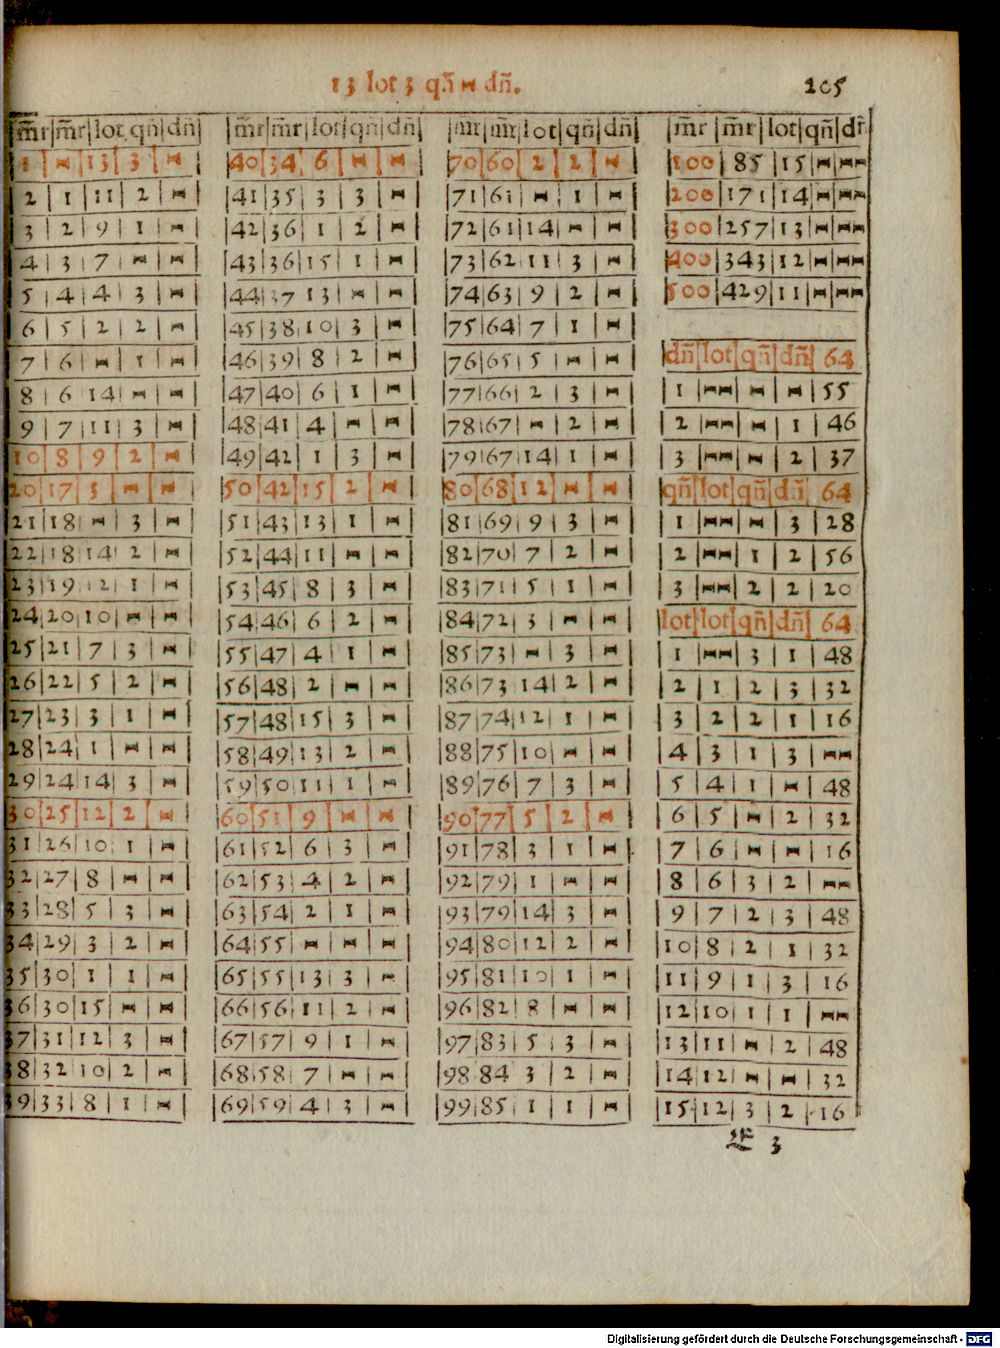 13 lot 3 qñ ⋈ dñ.
205
m̃r m̃r lot qñ dñ
1 ⋈ 13 3 ⋈
2 1 11 2 ⋈
3 2 9 1 ⋈
4 3 7 ⋈ ⋈
5 4 4 3 ⋈
6 5 2 2 ⋈
7 6 ⋈ 1 ⋈
8 6 14 ⋈ ⋈
9 7 11 3 ⋈
10 8 9 2 ⋈
20 17 3 ⋈ ⋈
21 18 ⋈ 3 ⋈
22 18 14 2 ⋈
23 19 12 1 ⋈
24 20 10 ⋈ ⋈
25 21 7 3 ⋈
26 22 5 2 ⋈
27 23 3 1 ⋈
28 24 1 ⋈ ⋈
29 24 14 3 ⋈
30 25 12 2 ⋈
31 26 10 1 ⋈
32 27 8 ⋈ ⋈
33 28 5 3 ⋈
34 29 3 2 ⋈
35 30 1 1 ⋈
36 30 15 ⋈ ⋈
37 31 12 3 ⋈
38 32 10 2 ⋈
39 33 8 1 ⋈
m̃r m̃r lot qñ dñ
40 34 6 ⋈ ⋈
41 35 3 3 ⋈
42 36 1 2 ⋈
43 36 15 1 ⋈
44 37 13 ⋈ ⋈
45 38 10 3 ⋈
46 39 8 2 ⋈
47 40 6 1 ⋈
48 41 4 ⋈ ⋈
49 42 1 3 ⋈
50 42 15 2 ⋈
51 43 13 1 ⋈
52 44 11 ⋈ ⋈
53 45 8 3 ⋈
54 46 6 2 ⋈
55 47 4 1 ⋈
56 48 2 ⋈ ⋈
57 48 15 3 ⋈
58 49 13 2 ⋈
59 50 11 1 ⋈
60 51 9 ⋈ ⋈
61 52 6 3 ⋈
62 53 4 2 ⋈
63 54 2 1 ⋈
64 55 ⋈ ⋈ ⋈
65 55 13 3 ⋈
66 56 11 2 ⋈
67 57 9 1 ⋈
68 58 7 ⋈ ⋈
69 59 4 3 ⋈
m̃r m̃r lot qñ dñ
70 60 2 2 ⋈
71 61 ⋈ 1 ⋈
72 61 14 ⋈ ⋈
73 62 11 3 ⋈
74 63 9 2 ⋈
75 64 7 1 ⋈
76 65 5 ⋈ ⋈
77 66 2 3 ⋈
78 67 ⋈ 2 ⋈
79 67 14 1 ⋈
80 68 12 ⋈ ⋈
81 69 9 3 ⋈
82 70 7 2 ⋈
83 71 5 1 ⋈
84 72 3 ⋈ ⋈
85 73 ⋈ 3 ⋈
86 73 14 2 ⋈
87 74 12 1 ⋈
88 75 10 ⋈ ⋈
89 76 7 3 ⋈
90 77 5 2 ⋈
91 78 3 1 ⋈
92 79 1 ⋈ ⋈
93 79 14 3 ⋈
94 80 12 2 ⋈
95 81 10 1 ⋈
96 82 8 ⋈ ⋈
97 83 5 3 ⋈
98 84 3 2 ⋈
99 85 1 1 ⋈
m̃r m̃r lot qñ dñ
100 85 15 ⋈ ⋈⋈
200 171 14 ⋈ ⋈⋈
300 257 13 ⋈ ⋈⋈
400 343 12 ⋈ ⋈⋈
500 429 11 ⋈ ⋈⋈
dñ lot qñ dñ 64
1 ⋈⋈ ⋈ ⋈ 55
2 ⋈⋈ ⋈ 1 46
3 ⋈⋈ ⋈ 2 37
qñ lot qñ dñ 64
1 ⋈⋈ ⋈ 3 28
2 ⋈⋈ 1 2 56
3 ⋈⋈ 2 2 20
lot lot qñ dñ 64
1 ⋈⋈ 3 1 48
2 1 2 3 32
3 2 2 1 16
4 3 1 3 ⋈⋈
5 4 1 ⋈ 48
6 5 ⋈ 2 32
7 6 ⋈ ⋈ 16
8 6 3 2 ⋈⋈
9 7 2 3 48
10 8 2 1 32
11 9 1 3 16
12 10 1 1 ⋈⋈
13 11 ⋈ 2 48
14 12 ⋈ ⋈ 32
15 12 3 2 16
Æ 3
Digitalisierung gefördert durch die Deutsche Forschungsgemeinschaft - DFG